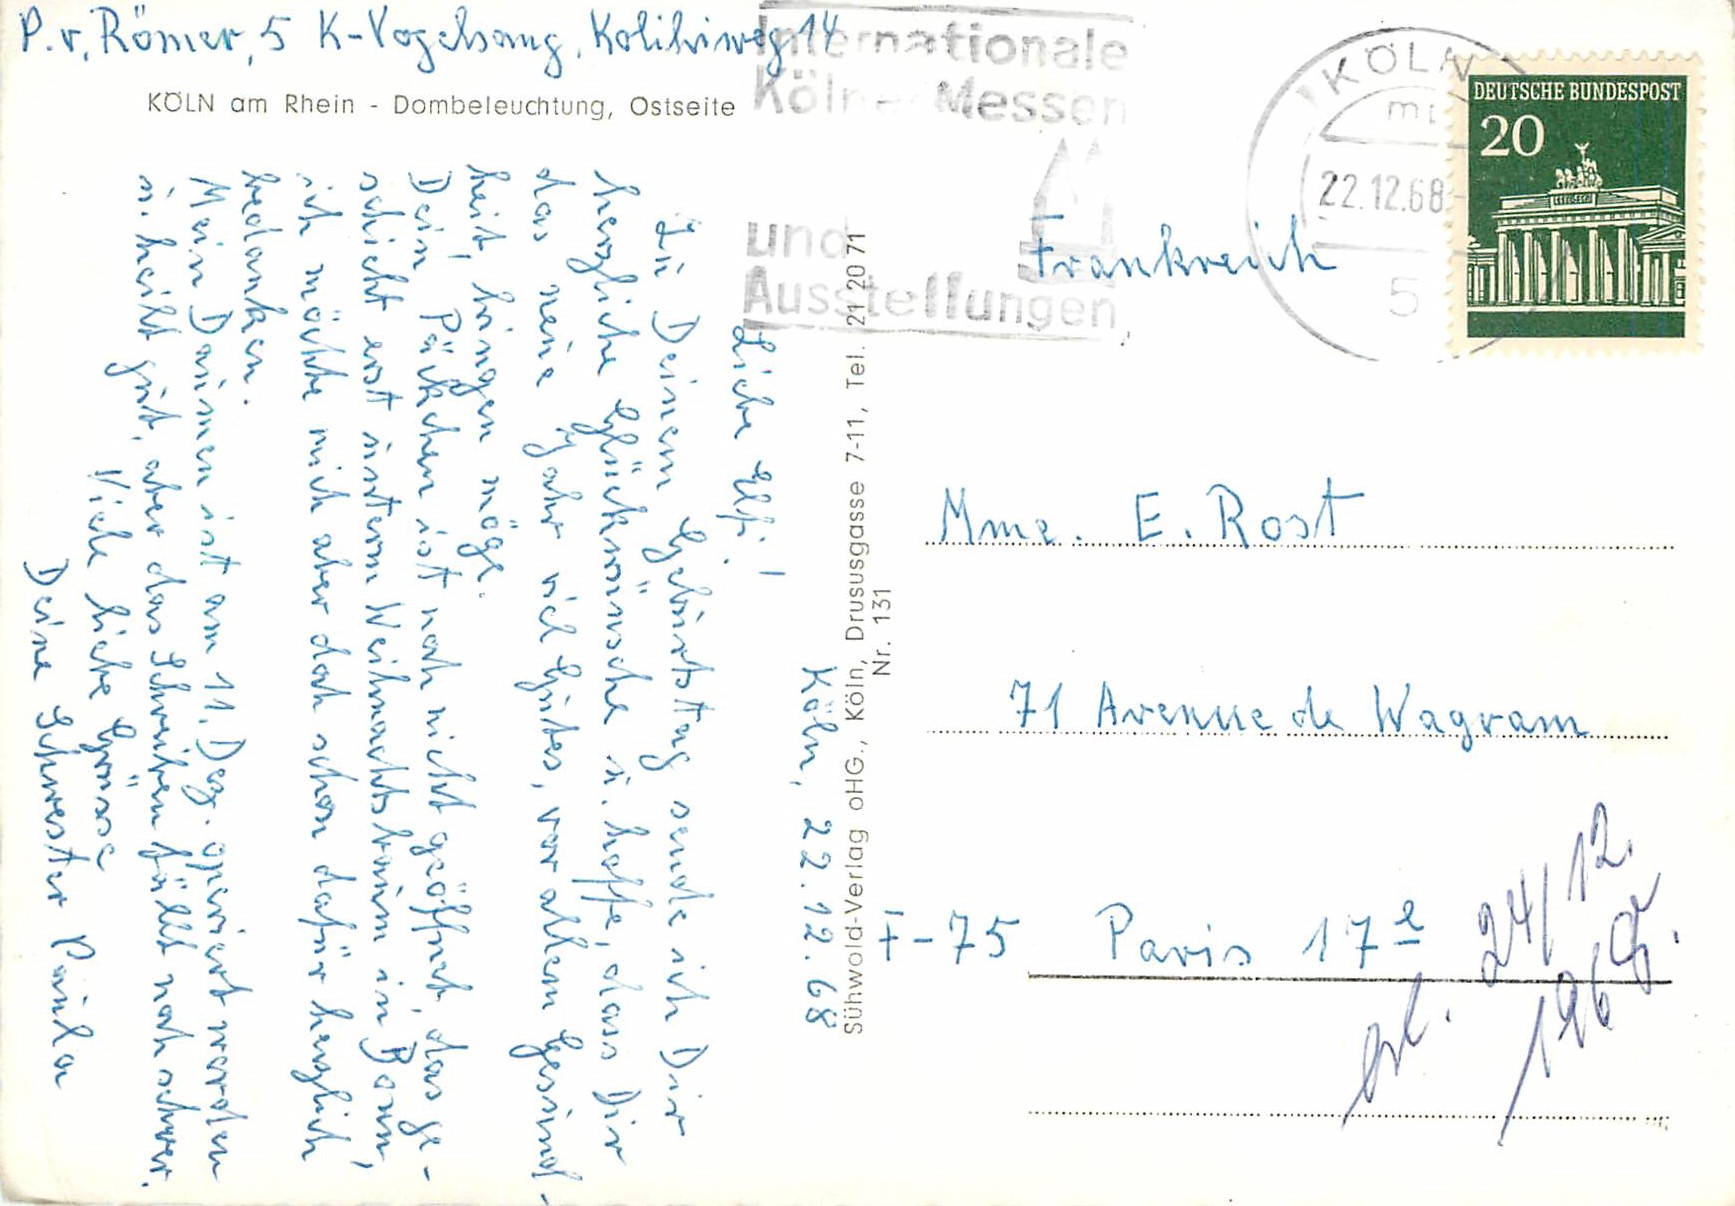 P. v. Römer, 5 K-Vogelsang, Kolibriweg 14
KÖLN am Rhein - Dombeleuchtung, Ostseite
Internationale
Kölner Messen
und
Ausstellungen
KÖLN
22.12.68
5
DEUTSCHE BUNDESPOST
20
Köln, 22.12.68
Liebe Elfi!
Zu Deinem Geburtstag sende ich Dir
herzliche Glückwünsche u. hoffe, dass Dir
das neue Jahr viel Gutes, vor allem Gesund-
heit, bringen möge.
Dein Päckchen ist noch nicht geöffnet, das ge-
schieht erst unterm Weihnachtsbaum in Bonn,
ich möchte mich aber doch schon dafür herzlich
bedanken.
Mein Daumen ist am 11. Dez. operiert worden
u. heilt gut, aber das Schreiben fällt noch schwer.
Viele liebe Grüsse
Deine Schwester Paula
Sühwold-Verlag oHG., Köln, Drususgasse 7-11, Tel. 21 20 71
Nr. 131
Frankreich
Mme. E. Rost
71 Avenue de Wagram
F-75 Paris 17e
24/12.
1968.